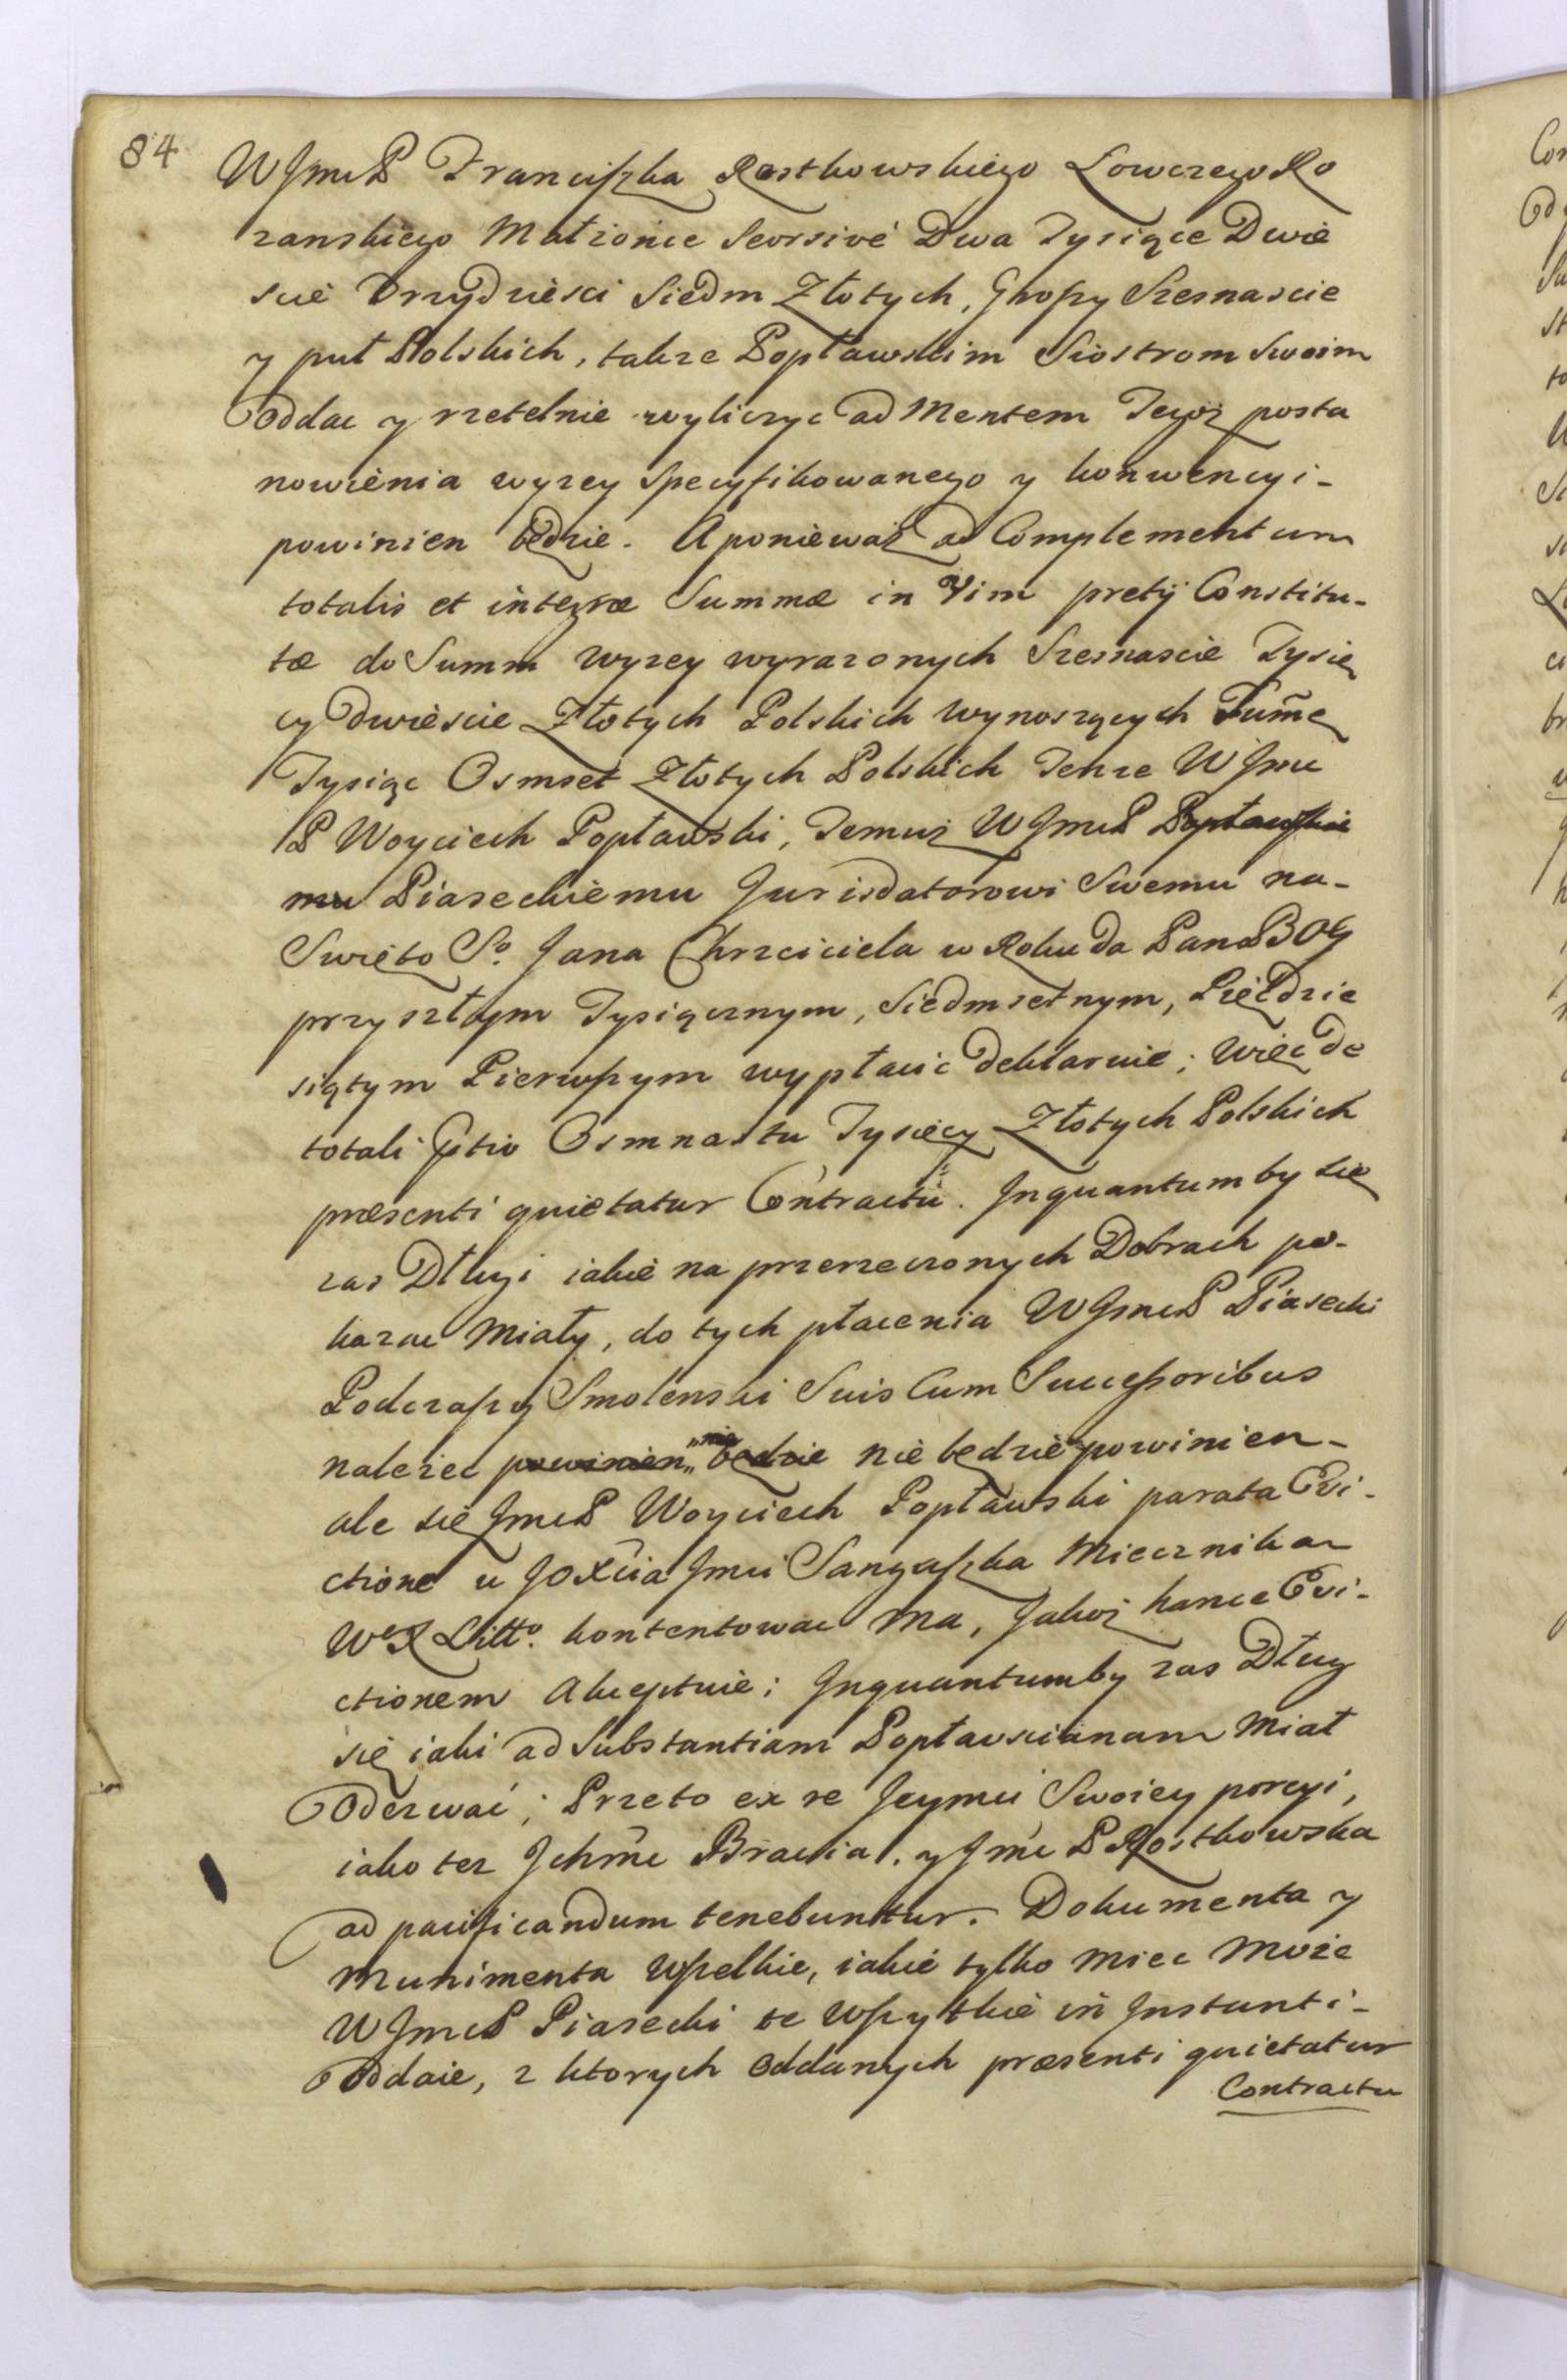 84
WJmcP Franciszka Rostkowskiego Łowczego Ro
zanskiego Małżonce Seorsivé Dwa Tysiące Dwie
scie Trzydziesci Siedm Złotych, Groszy Szesnascie
y puł Polskich, także Popławskim Siostrom Swoim
Oddac y rzetelnie wyliczyc ad Mentem Tegoż posta
nowienia wyzey Specyfikowanego y konwencyi -
powinien będzie. A ponieważ ad Complementum
totalis et integræ Summæ in Vim pretij Constitu-
tæ do Summ wyzey wyrazonych Szesnascie Tysię
cy Dwiescie Złotych Polskich wynoszących Sum̃ę
Tysiąc Osmset Złotych Polskich Tenze WJmc
P Woyciech Popławski, Temuż WJmcP Popławskie
mu Piaseckiemu Jurisdatorowi Swemu na-
Swięto So. Jana Chrzciciela w Roku da Pan BOG
przyszłym Tysiącznym, Siedmsetnym, Pięćdzie
siątym Pierwszym wypłacic deklaruie; Więc de
totali Pttio Osmnastu Tysięcy Złotych Polskich
præsenti quietatur Contractu. Inquantum by się
zas Długi iakie na przerzeczonych Dobrach po-
kazac Miały, do tych płacenia WJmcP Piasecki
Podczaszy Smolenski Suis Cum Successoribus
nalezec powinien „nie będzie nie będzie powinien -
ale się JmcP Woyciech Popławski parata Evi-
ctione u JOXcia Jmci Sanguszka Miecznika
WoX Litto. kontentowac Ma, Jakoż hance Evi-
ctionem Akceptuie; Inquantumby zas Dług
się iaki ad Substantiam Popławscianam Miał
Oderwać; Przeto ex re Jeymci Swoiey porcyi,
iako tez Ichm̃c Bracia, y Jmc P Rostkowska
ad pacificandum tenebuntur. Dokumenta y
Munimenta Wszelkie, iakie tylko Miec Może
WJmcP Piasecki te Wszytkie in Instanti -
Oddaie, z ktorych Oddanych præsenti quietatur
Contractu